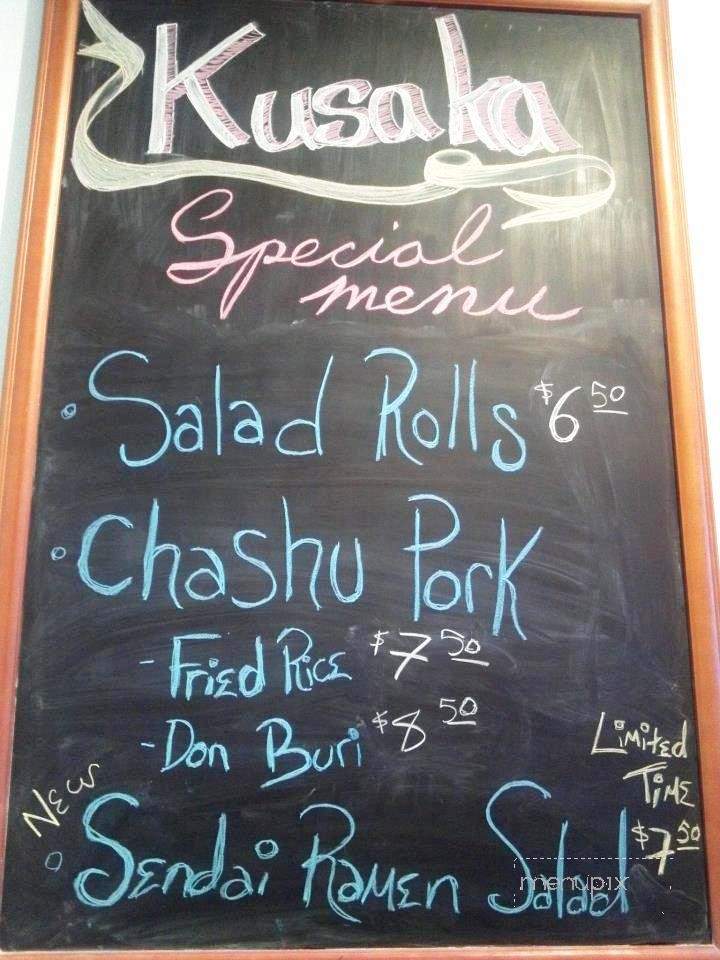 Kusaka
Special
menu
• Salad Rolls $6 50
• Chashu Pork
- Fried Rice $7 50
- Don Buri $8 50
Limited
Time
New
$7 50
Sendai Ramen Salad
menupix